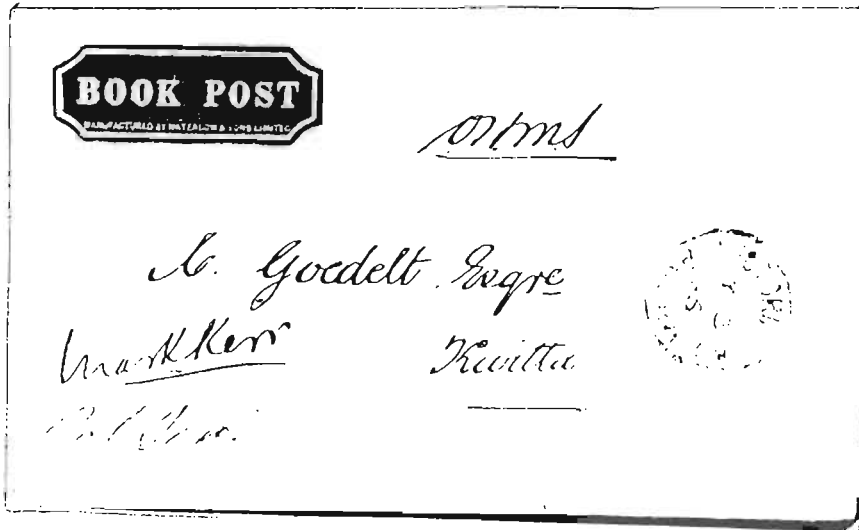 BOOK POST
MANUFACTURED BY WATERLOW & SONS LIMITED
OHMS
Goedelt Esqre
Mark Kerr
Kwitta